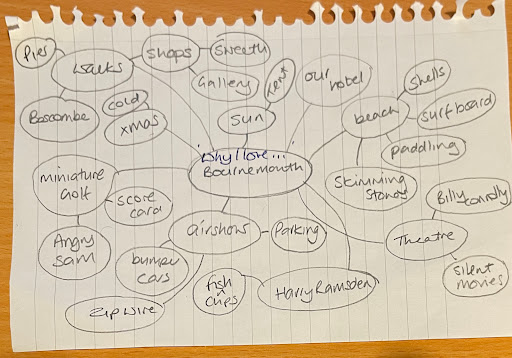 Pies
walks
shops
Sweets
Gallery
Boscombe
cold
xmas
sun
our
hotel
Shells
beach
surfboard
paddling
skimming
stones
Why I love...
Bournemouth
miniature
Golf
score
card
Angry
Sam
airshows
Parking
bumper
cars
zip wire
fish
chips
Harry Ramsden
Theatre
Billy Connolly
silent
movies